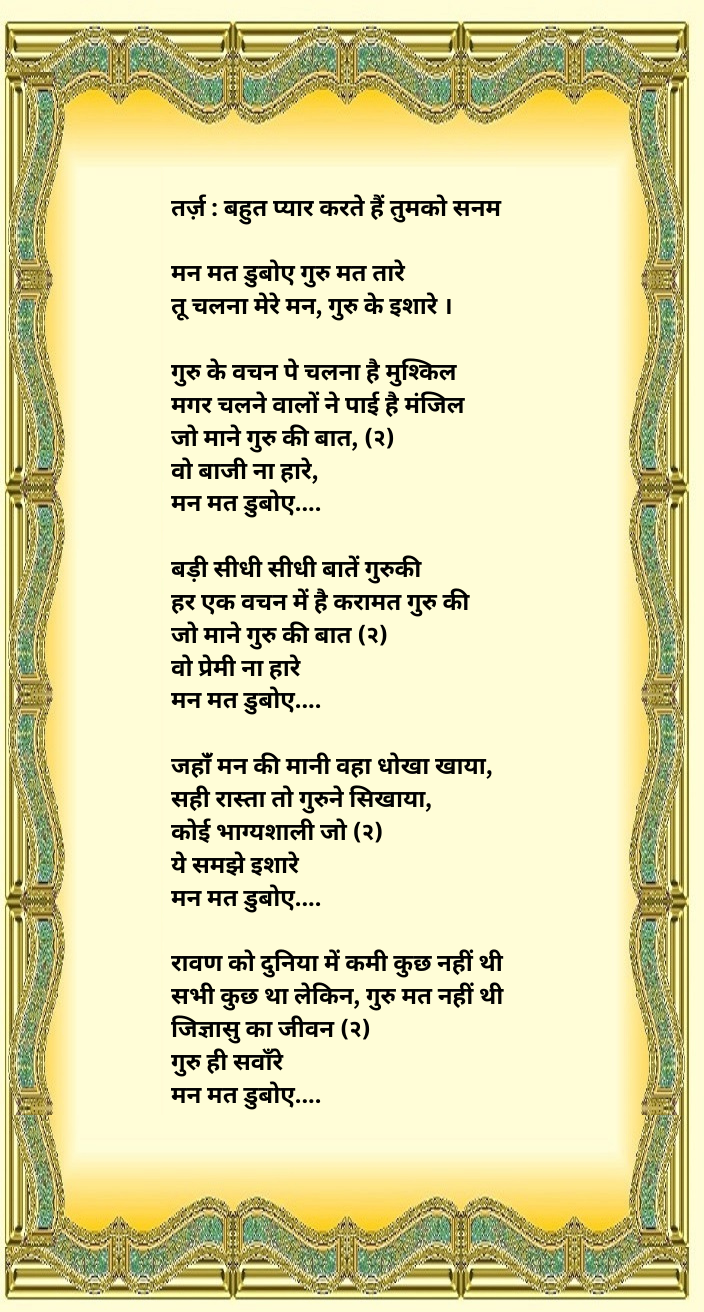 तर्ज़ : बहुत प्यार करते हैं तुमको सनम
मन मत डुबोए गुरु मत तारे
तू चलना मेरे मन, गुरु के इशारे ।
गुरु के वचन पे चलना है मुश्किल
मगर चलने वालों ने पाई है मंजिल
जो माने गुरु की बात, (२)
वो बाजी ना हारे,
मन मत डुबोए....
बड़ी सीधी सीधी बातें गुरुकी
हर एक वचन में है करामत गुरु की
जो माने गुरु की बात (२)
वो प्रेमी ना हारे
मन मत डुबोए....
जहाँ मन की मानी वहा धोखा खाया,
सही रास्ता तो गुरुने सिखाया,
कोई भाग्यशाली जो (२)
ये समझे इशारे
मन मत डुबोए....
रावण को दुनिया में कमी कुछ नहीं थी
सभी कुछ था लेकिन, गुरु मत नहीं थी
जिज्ञासु का जीवन (२)
गुरु ही सवाँरे
मन मत डुबोए....